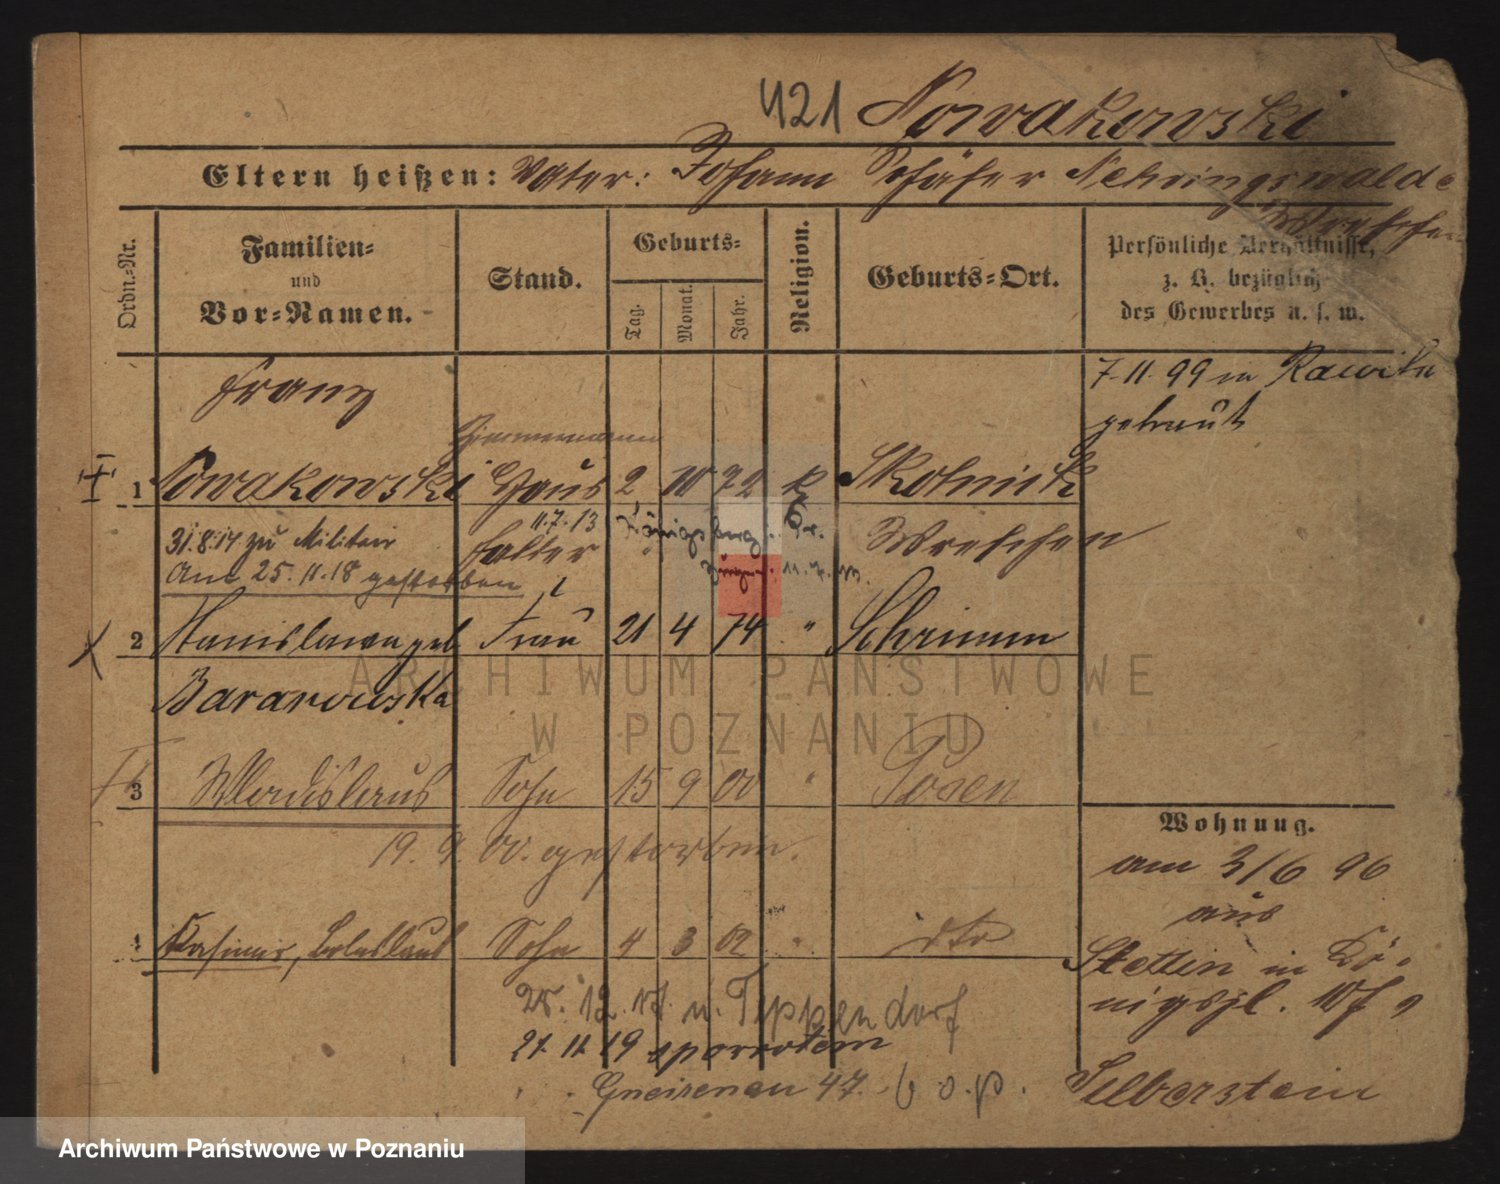 421 Nowakowski
Eltern heißen: Vater: Johann Schäfer Nekringswalde
Wreschen
Ordn.-Nr.
Familien- und Vor-Namen.
Stand.
Geburts-
Tag.
Monat.
Jahr.
Religion.
Geburts-Ort.
Persönliche Verhältnisse,
z. B. bezüglich
des Gewerbes u. s. w.
Franz
7.11.99 in Rawitsch
getraut
Zimmermann
1 Nowakowski Haus 2 10 72 k Skotnik
11.7.13
31.8.14 zu Militair
halter
Wreschen
am 25.11.18 gestorben
2 Stanislawa geb Frau 21 4 74 " Schrimm
Baranowska
3 Wladislaus Sohn 15 9 00 " Posen
19. 9. 00. gestorben.
Wohnung.
am 3/6 96
aus
4 Kasimir, Boleslaus Sohn 4 3 02 " dto
Stettin in Kö-
nigspl. 10
25. 12. n. Tippendorf
21 11 19
Gneisenau 47. b o. p.
Silberstein
ARCHIWUM PAŃSTWOWE
W POZNANIU
Archiwum Państwowe w Poznaniu